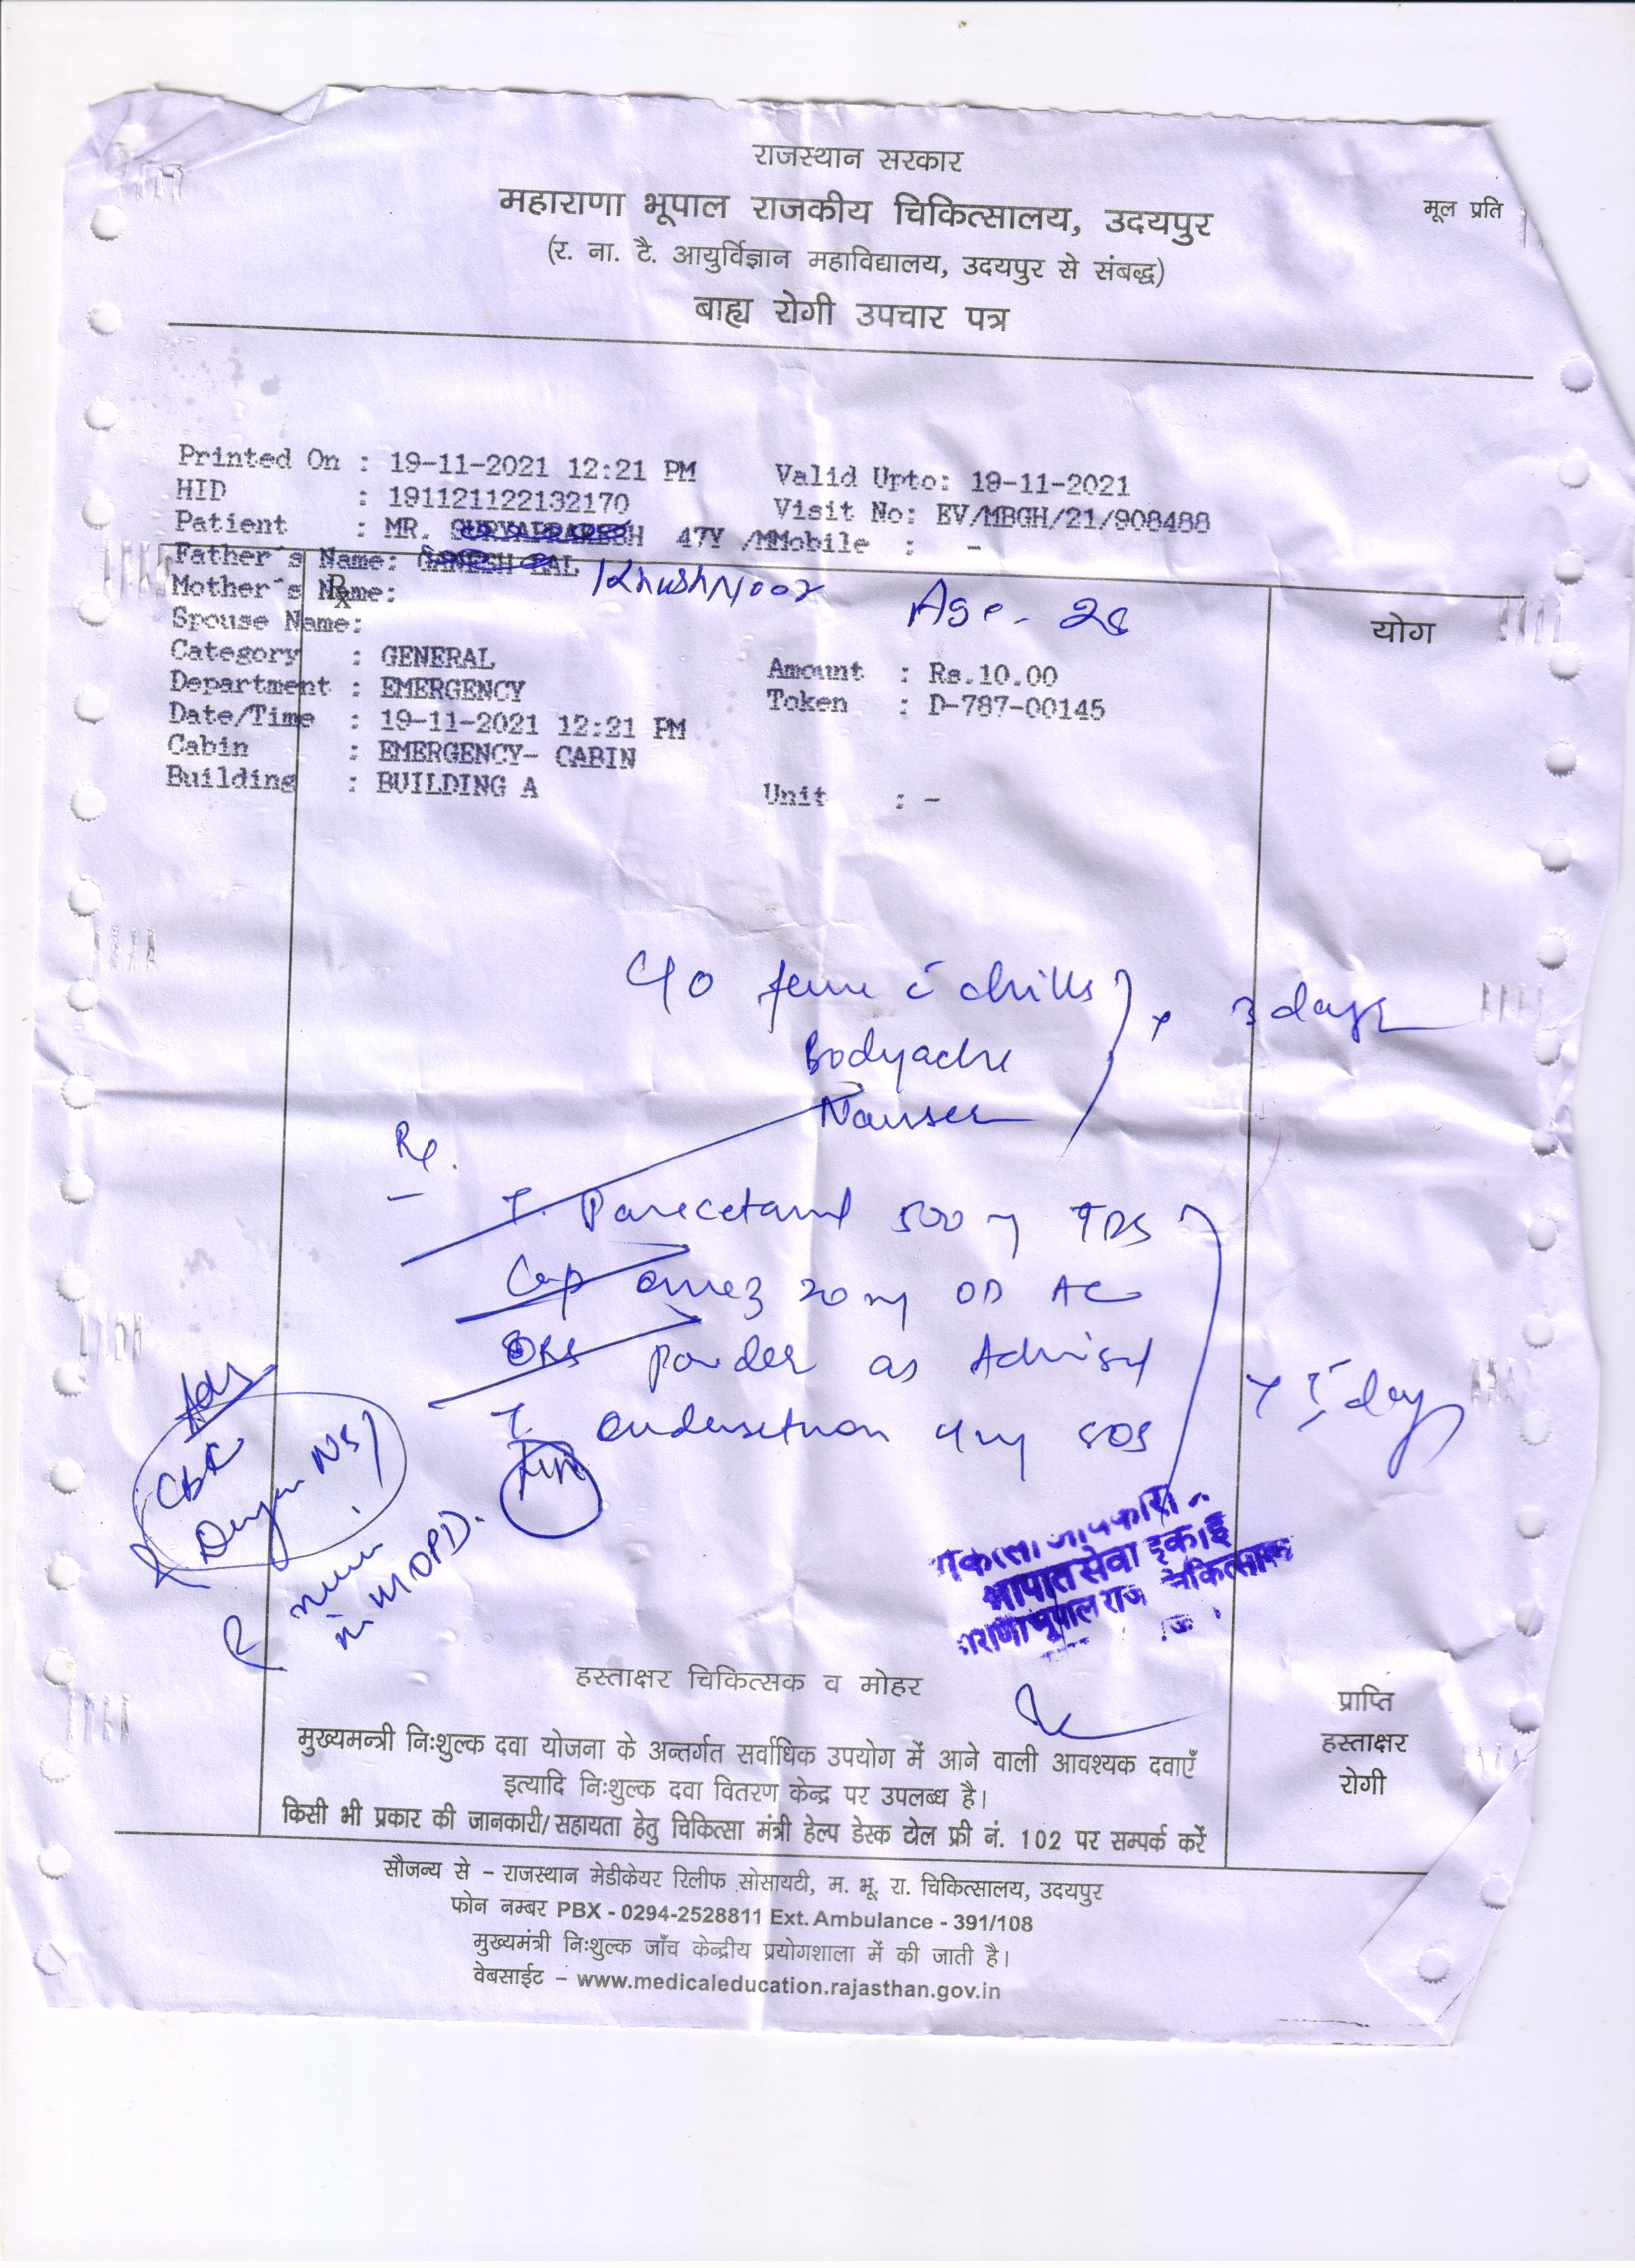 राजस्थान सरकार
महाराणा भूपाल राजकीय चिकित्सालय, उदयपुर
मूल प्रति
(र. ना. टै. आयुर्विज्ञान महाविद्यालय, उदयपुर से संबद्ध)
बाह्य रोगी उपचार पत्र
Printed On : 19-11-2021 12:21 PM Valid Upto: 19-11-2021
HID : 191121122132170 Visit No: EV/MBGH/21/908488
Patient : MR. 47Y /MMobile : -
Father's Name: LAL KhushNoor Age - 28
Mother's Name:
Rx
Spouse Name:
योग
Category : GENERAL Amount : Rs.10.00
Department : EMERGENCY Token : D-787-00145
Date/Time : 19-11-2021 12:21 PM
Cabin : EMERGENCY- CABIN
Building : BUILDING A Unit : -
C/O fever c̄ chills x 3 days
Bodyache
Nausea
Rx.
T. Paracetamol 500 mg TDS
Cap omez 20 mg OD AC
ORS Powder as Advised x 5 day
T. ondansetron 4mg SOS
Adv
CBC
Dengue NS1
in MOPD.
आपात सेवा इकाई
हस्ताक्षर चिकित्सक व मोहर
प्राप्ति
हस्ताक्षर
रोगी
मुख्यमन्त्री निःशुल्क दवा योजना के अन्तर्गत सर्वाधिक उपयोग में आने वाली आवश्यक दवाएँ
इत्यादि निःशुल्क दवा वितरण केन्द्र पर उपलब्ध है।
किसी भी प्रकार की जानकारी/सहायता हेतु चिकित्सा मंत्री हेल्प डेस्क टोल फ्री नं. 102 पर सम्पर्क करें
सौजन्य से – राजस्थान मेडीकेयर रिलीफ सोसायटी, म. भू. रा. चिकित्सालय, उदयपुर
फोन नम्बर PBX - 0294-2528811 Ext. Ambulance - 391/108
मुख्यमंत्री निःशुल्क जाँच केन्द्रीय प्रयोगशाला में की जाती है।
वेबसाईट – www.medicaleducation.rajasthan.gov.in